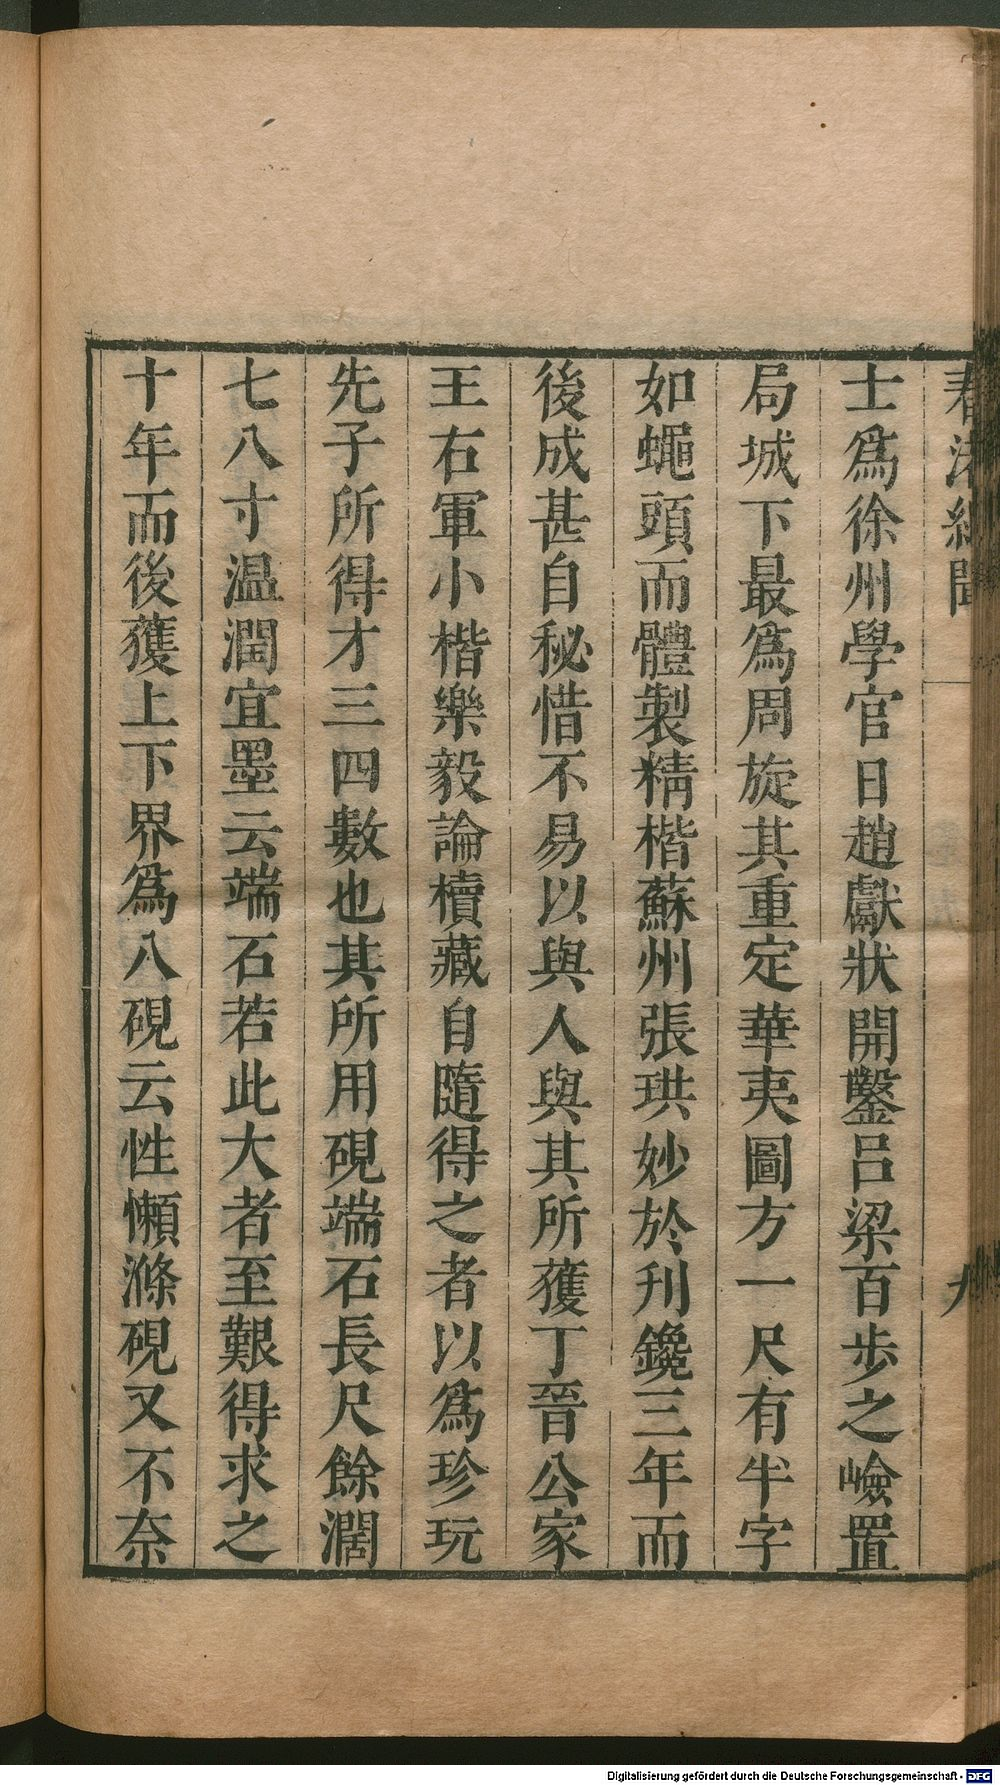 春渚紀聞
九
士爲徐州學官日趙獻狀開鑿呂梁百步之嶮置
局城下最爲周旋其重定華夷圖方一尺有半字
如蠅頭而體製精楷蘇州張珙妙於刋鑱三年而
後成甚自秘惜不易以與人與其所獲丁晉公家
王右軍小楷樂毅論櫝藏自隨得之者以爲珍玩
先子所得才三四數也其所用硯端石長尺餘濶
七八寸温潤宜墨云端石若此大者至艱得求之
十年而後獲上下界爲八硯云性懶滌硯又不奈
Digitalisierung gefördert durch die Deutsche Forschungsgemeinschaft - DFG